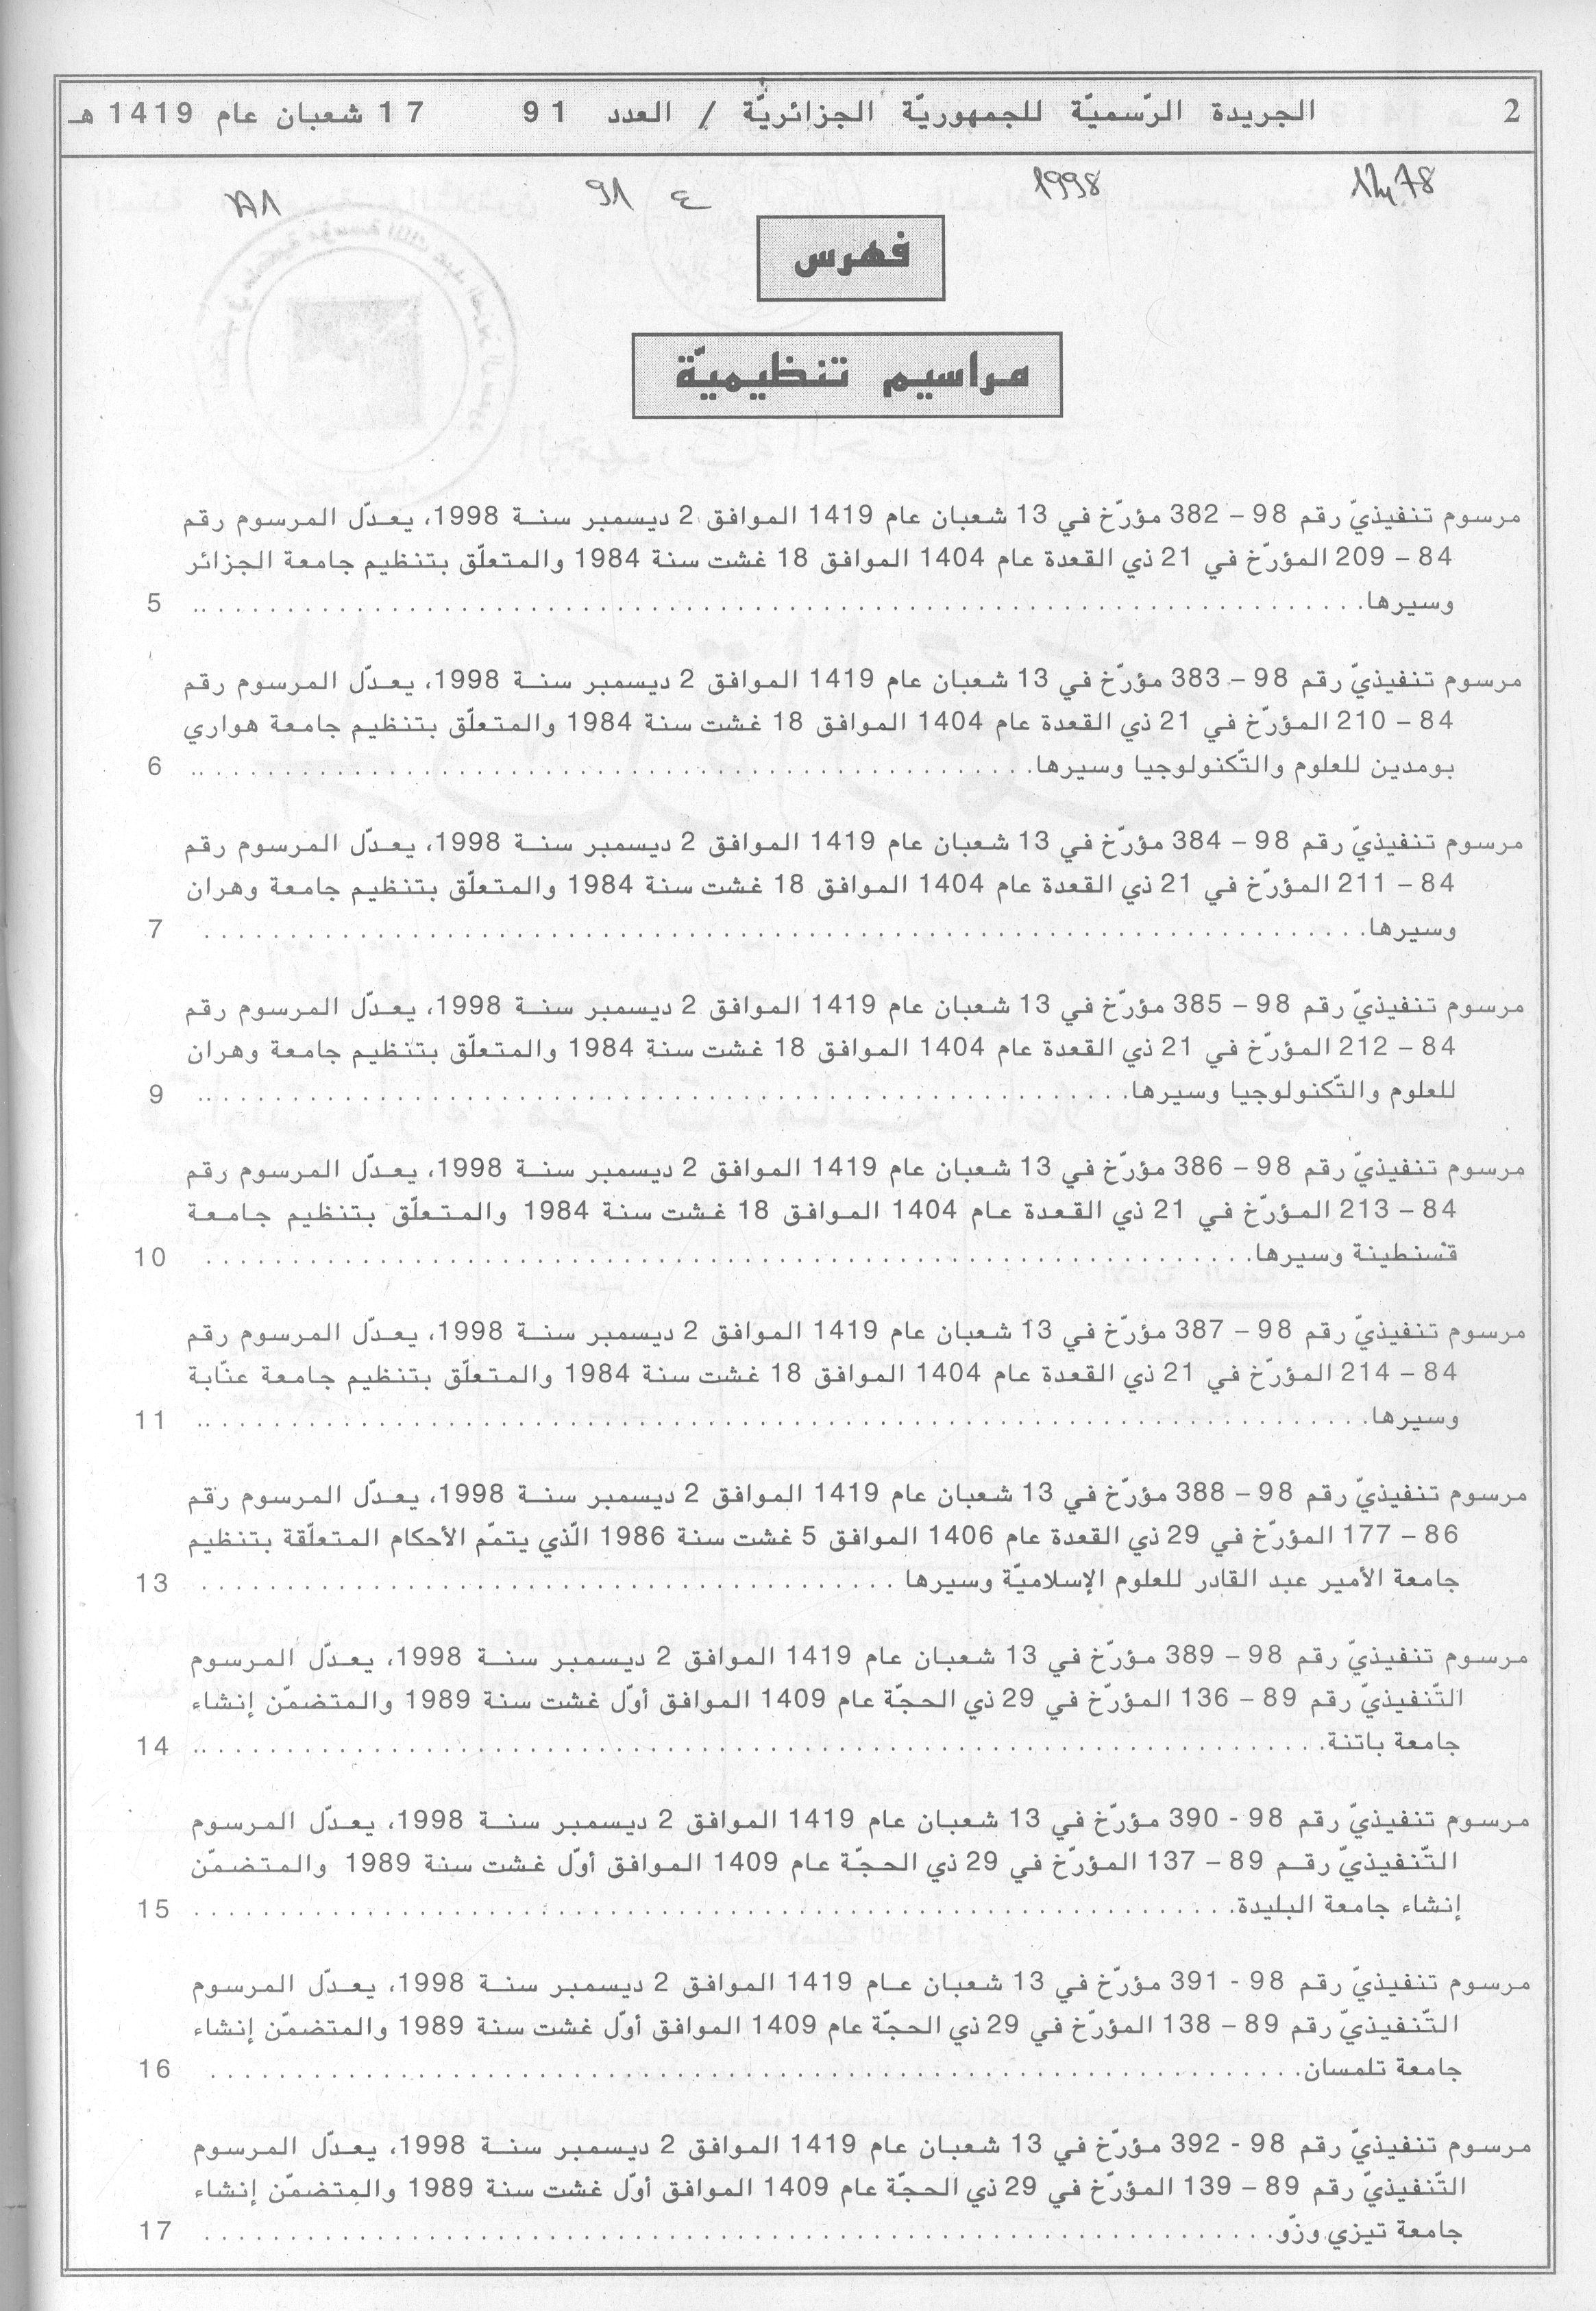 2 الجريدة الرّسميّة للجمهوريّة الجزائريّة / العدد 91 17 شعبان عام 1419 هـ
1998 ع 91
فهرس
مراسيم تنظيميّة
مرسوم تنفيذيّ رقم 98 – 382 مؤرّخ في 13 شعبان عام 1419 الموافق 2 ديسمبر سنة 1998، يعدّل المرسوم رقم
84 – 209 المؤرّخ في 21 ذي القعدة عام 1404 الموافق 18 غشت سنة 1984 والمتعلّق بتنظيم جامعة الجزائر
وسيرها. 5
مرسوم تنفيذيّ رقم 98 – 383 مؤرّخ في 13 شعبان عام 1419 الموافق 2 ديسمبر سنة 1998، يعدّل المرسوم رقم
84 – 210 المؤرّخ في 21 ذي القعدة عام 1404 الموافق 18 غشت سنة 1984 والمتعلّق بتنظيم جامعة هواري
بومدين للعلوم والتّكنولوجيا وسيرها. 6
مرسوم تنفيذيّ رقم 98 – 384 مؤرّخ في 13 شعبان عام 1419 الموافق 2 ديسمبر سنة 1998، يعدّل المرسوم رقم
84 – 211 المؤرّخ في 21 ذي القعدة عام 1404 الموافق 18 غشت سنة 1984 والمتعلّق بتنظيم جامعة وهران
وسيرها. 7
مرسوم تنفيذيّ رقم 98 – 385 مؤرّخ في 13 شعبان عام 1419 الموافق 2 ديسمبر سنة 1998، يعدّل المرسوم رقم
84 – 212 المؤرّخ في 21 ذي القعدة عام 1404 الموافق 18 غشت سنة 1984 والمتعلّق بتنظيم جامعة وهران
للعلوم والتّكنولوجيا وسيرها. 9
مرسوم تنفيذيّ رقم 98 – 386 مؤرّخ في 13 شعبان عام 1419 الموافق 2 ديسمبر سنة 1998، يعدّل المرسوم رقم
84 – 213 المؤرّخ في 21 ذي القعدة عام 1404 الموافق 18 غشت سنة 1984 والمتعلّق بتنظيم جامعة
قسنطينة وسيرها. 10
مرسوم تنفيذيّ رقم 98 – 387 مؤرّخ في 13 شعبان عام 1419 الموافق 2 ديسمبر سنة 1998، يعدّل المرسوم رقم
84 – 214 المؤرّخ في 21 ذي القعدة عام 1404 الموافق 18 غشت سنة 1984 والمتعلّق بتنظيم جامعة عنّابة
وسيرها. 11
مرسوم تنفيذيّ رقم 98 – 388 مؤرّخ في 13 شعبان عام 1419 الموافق 2 ديسمبر سنة 1998، يعدّل المرسوم رقم
86 – 177 المؤرّخ في 29 ذي القعدة عام 1406 الموافق 5 غشت سنة 1986 الّذي يتمّم الأحكام المتعلّقة بتنظيم
جامعة الأمير عبد القادر للعلوم الإسلاميّة وسيرها 13
مرسوم تنفيذيّ رقم 98 – 389 مؤرّخ في 13 شعبان عام 1419 الموافق 2 ديسمبر سنة 1998، يعدّل المرسوم
التّنفيذيّ رقم 89 – 136 المؤرّخ في 29 ذي الحجّة عام 1409 الموافق أوّل غشت سنة 1989 والمتضمّن إنشاء
جامعة باتنة. 14
مرسوم تنفيذيّ رقم 98 - 390 مؤرّخ في 13 شعبان عام 1419 الموافق 2 ديسمبر سنة 1998، يعدّل المرسوم
التّنفيذيّ رقم 89 – 137 المؤرّخ في 29 ذي الحجّة عام 1409 الموافق أوّل غشت سنة 1989 والمتضمّن
إنشاء جامعة البليدة. 15
مرسوم تنفيذيّ رقم 98 - 391 مؤرّخ في 13 شعبان عام 1419 الموافق 2 ديسمبر سنة 1998، يعدّل المرسوم
التّنفيذيّ رقم 89 – 138 المؤرّخ في 29 ذي الحجّة عام 1409 الموافق أوّل غشت سنة 1989 والمتضمّن إنشاء
جامعة تلمسان. 16
مرسوم تنفيذيّ رقم 98 - 392 مؤرّخ في 13 شعبان عام 1419 الموافق 2 ديسمبر سنة 1998، يعدّل المرسوم
التّنفيذيّ رقم 89 – 139 المؤرّخ في 29 ذي الحجّة عام 1409 الموافق أوّل غشت سنة 1989 والمتضمّن إنشاء
جامعة تيزي وزّو. 17